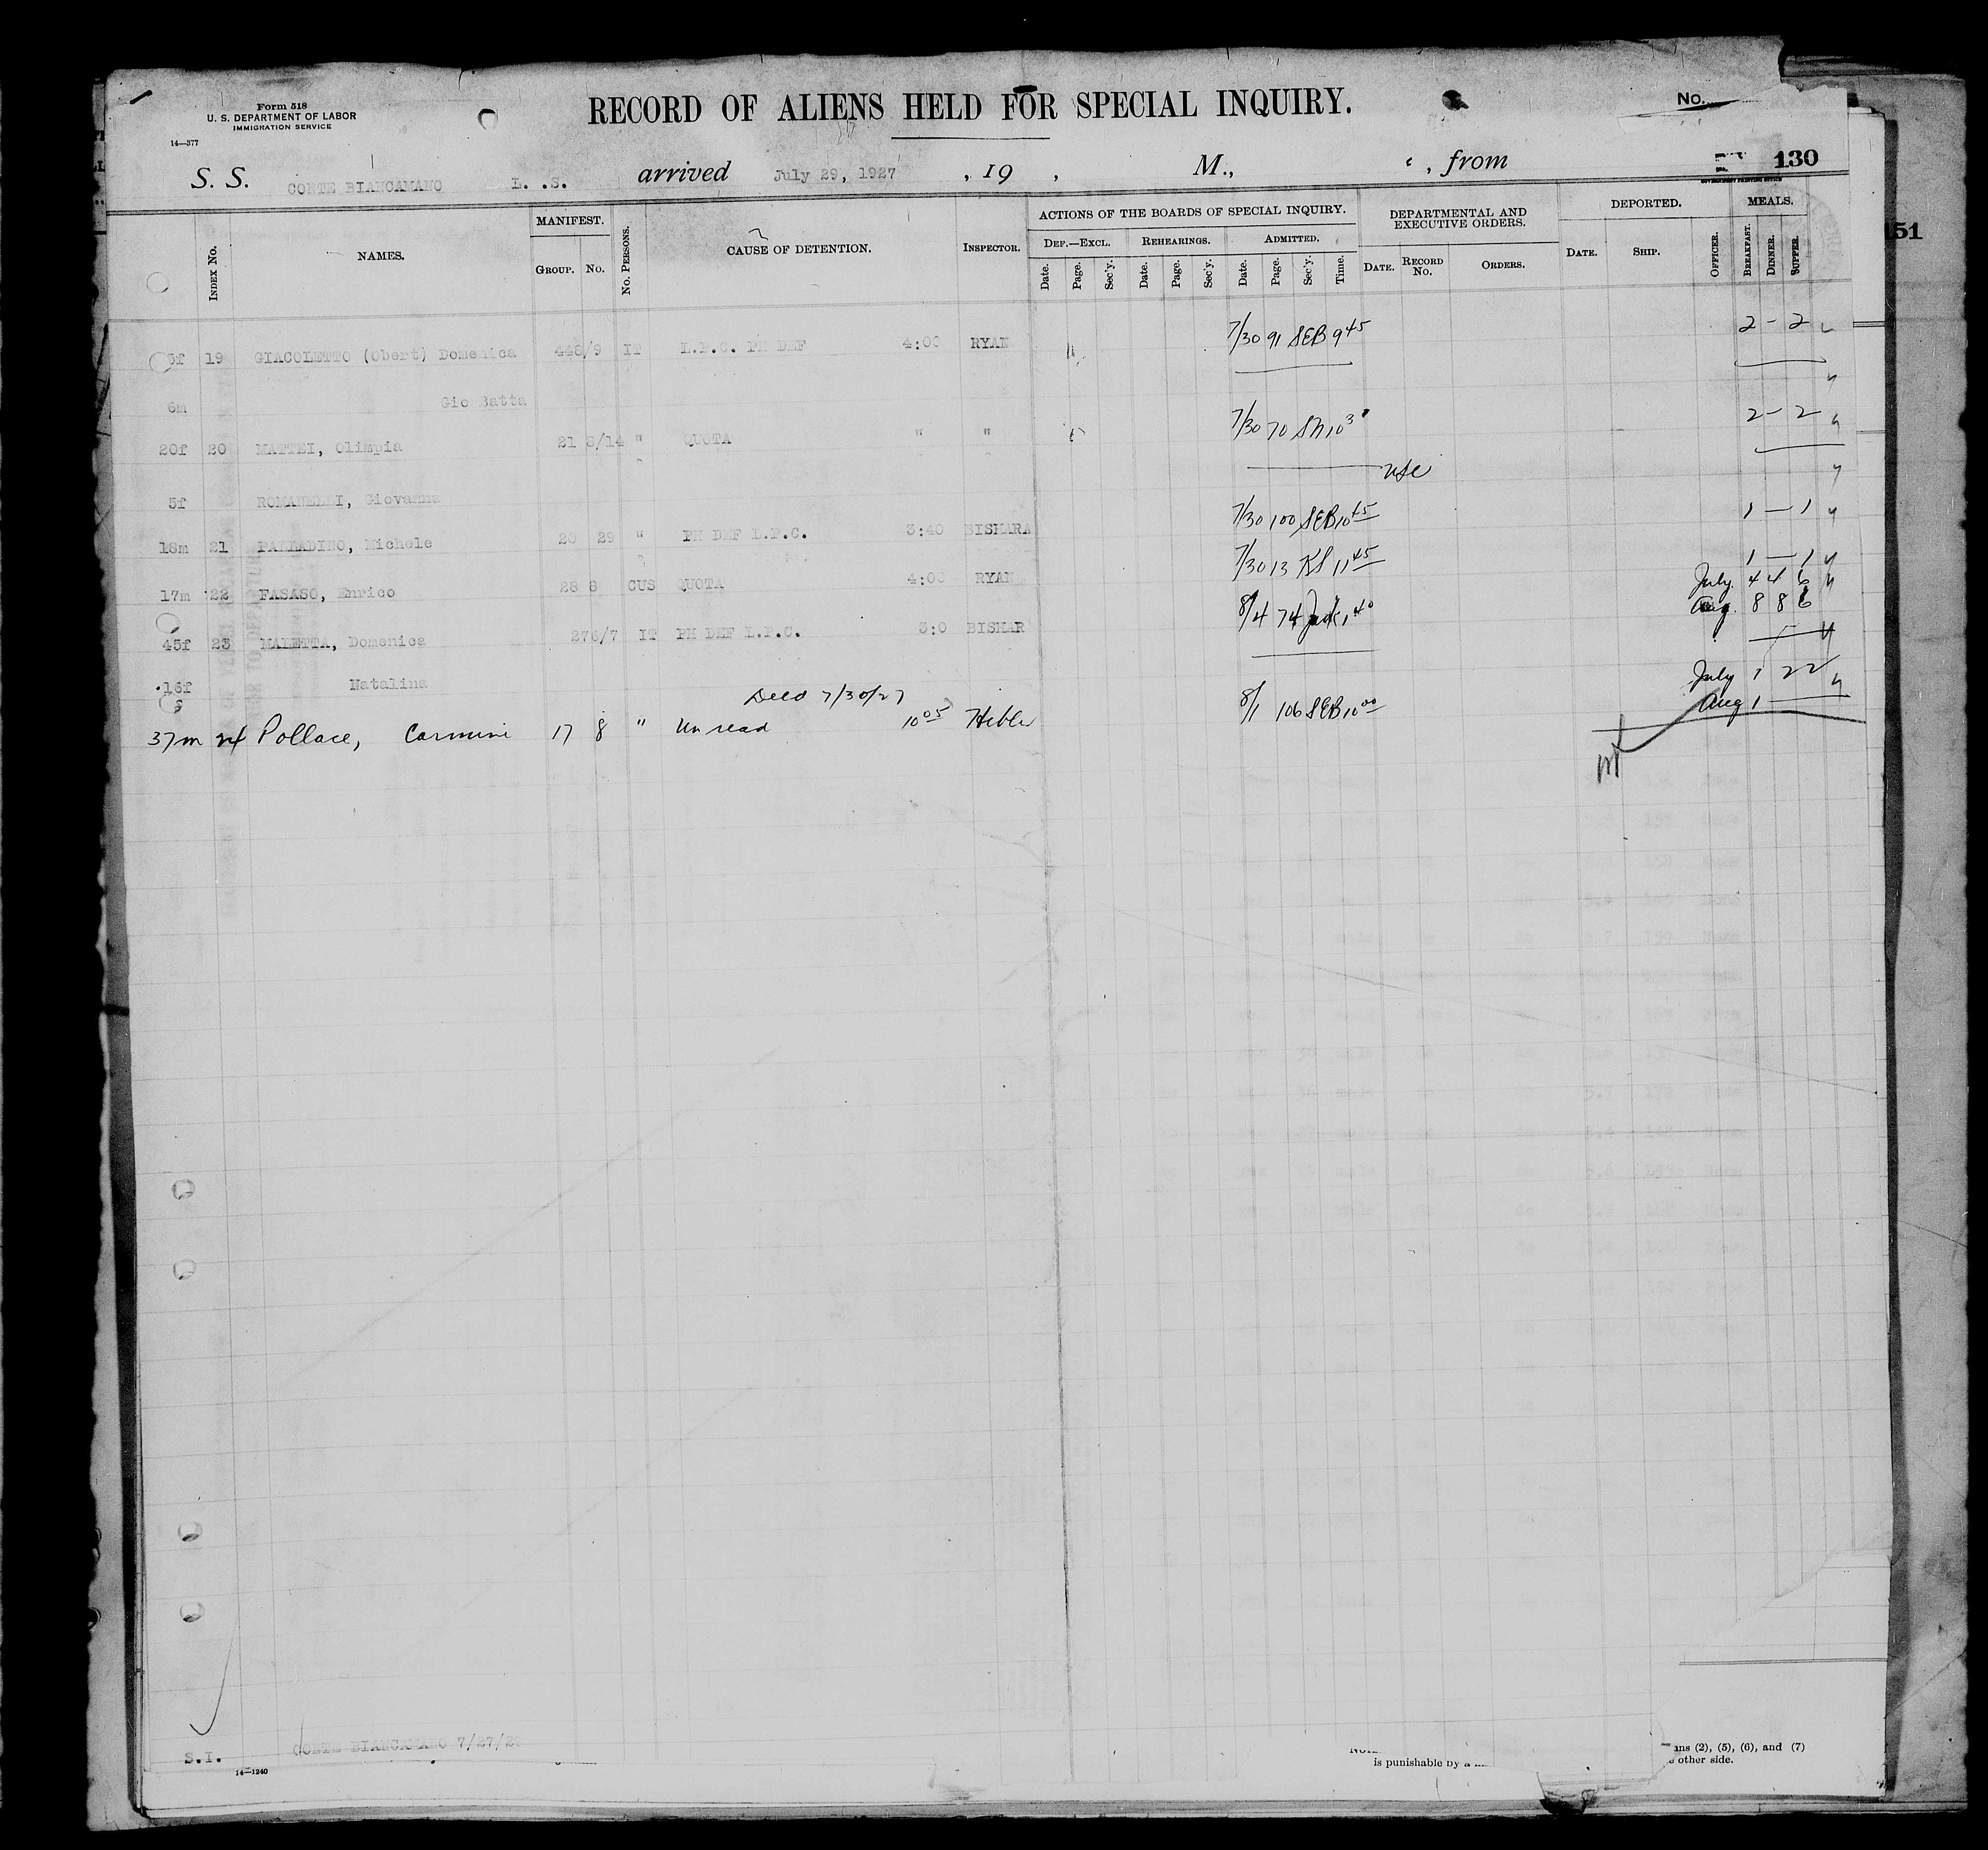 Form 518
U. S. DEPARTMENT OF LABOR
IMMIGRATION SERVICE
14—377
RECORD OF ALIENS HELD FOR SPECIAL INQUIRY.
No.
S. S. CONTE BIANCAMANO L. .S. arrived July 29, 1927 , 19 , M., , from
130
151
INDEX NO. NAMES. MANIFEST. GROUP. NO. NO. PERSONS. CAUSE OF DETENTION. INSPECTOR. ACTIONS OF THE BOARDS OF SPECIAL INQUIRY. DEF.—EXCL. Date. Page. Sec'y. REHEARINGS. Date. Page. Sec'y. ADMITTED. Date. Page. Sec'y. Time. DEPARTMENTAL AND EXECUTIVE ORDERS. DATE. RECORD NO. ORDERS. DEPORTED. DATE. SHIP. OFFICER. MEALS. BREAKFAST. DINNER. SUPPER.
3f 19 GIACOLETTO (Obert) Domenica 448/9 IT L.P.C. PH DEF 4:00 RYAN 7/30 91 SEB 9 45 2 — 2
6m Gio Batta
20f 20 MATTEI, Olimpia 21 8/14 " QUOTA " " 7/30 70 2 — 2
usc
5f ROMANELLI, Giovanna
18m 21 PALLADINO, Michele 20 29 " PH DEF L.P.C. 3:40 BISHARA 7/30 100 SEB 10 45 1 — 1
17m 22 FASASO, Enrico 28 8 CUS QUOTA 4:00 RYAN 7/30 13 KS 11 45 1 — 1
July 4 4 6
Aug. 8 8 6
45f 23 MALETTA, Domenica 276/7 IT PH DEF L.P.C. 3:0 BISHAR 8/4 74 1 40
16f Natalina
Decd 7/30/27
July 1 2 2
Aug 1
37m 24 Pollace, Carmine 17 8 " Unread 10 05 Hibler 8/1 106 SEB 10 00
S.I. CONTE BIANCAMANO 7/27/2
14—1240
is punishable by a
ans (2), (5), (6), and (7)
other side.